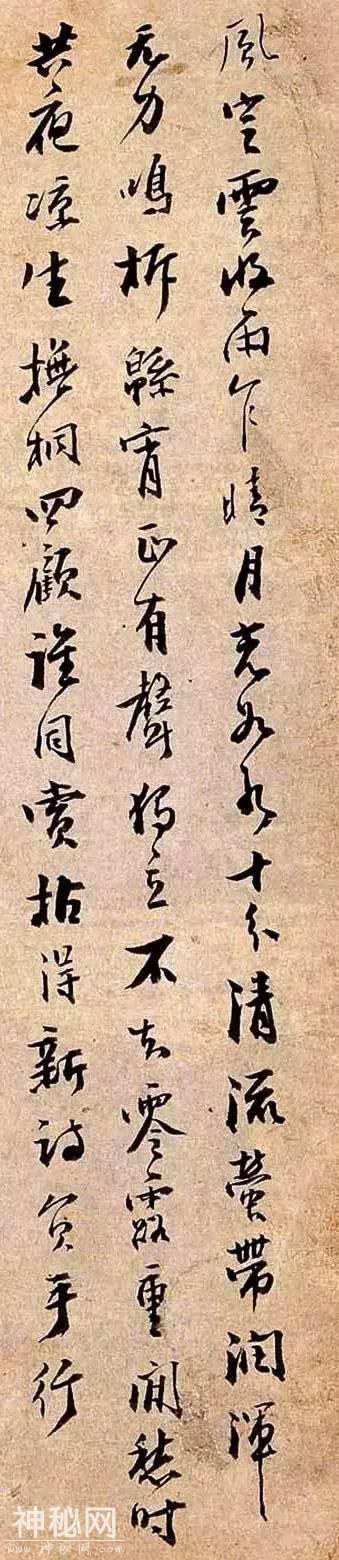 風定雲收雨乍晴月光如水十分清流螢帶潤渾
无力鳴柝緜宵正有聲獨立不知零露重閒愁時
共夜凉生撫桐四顧誰同賞拈得新詩負手行
神秘网